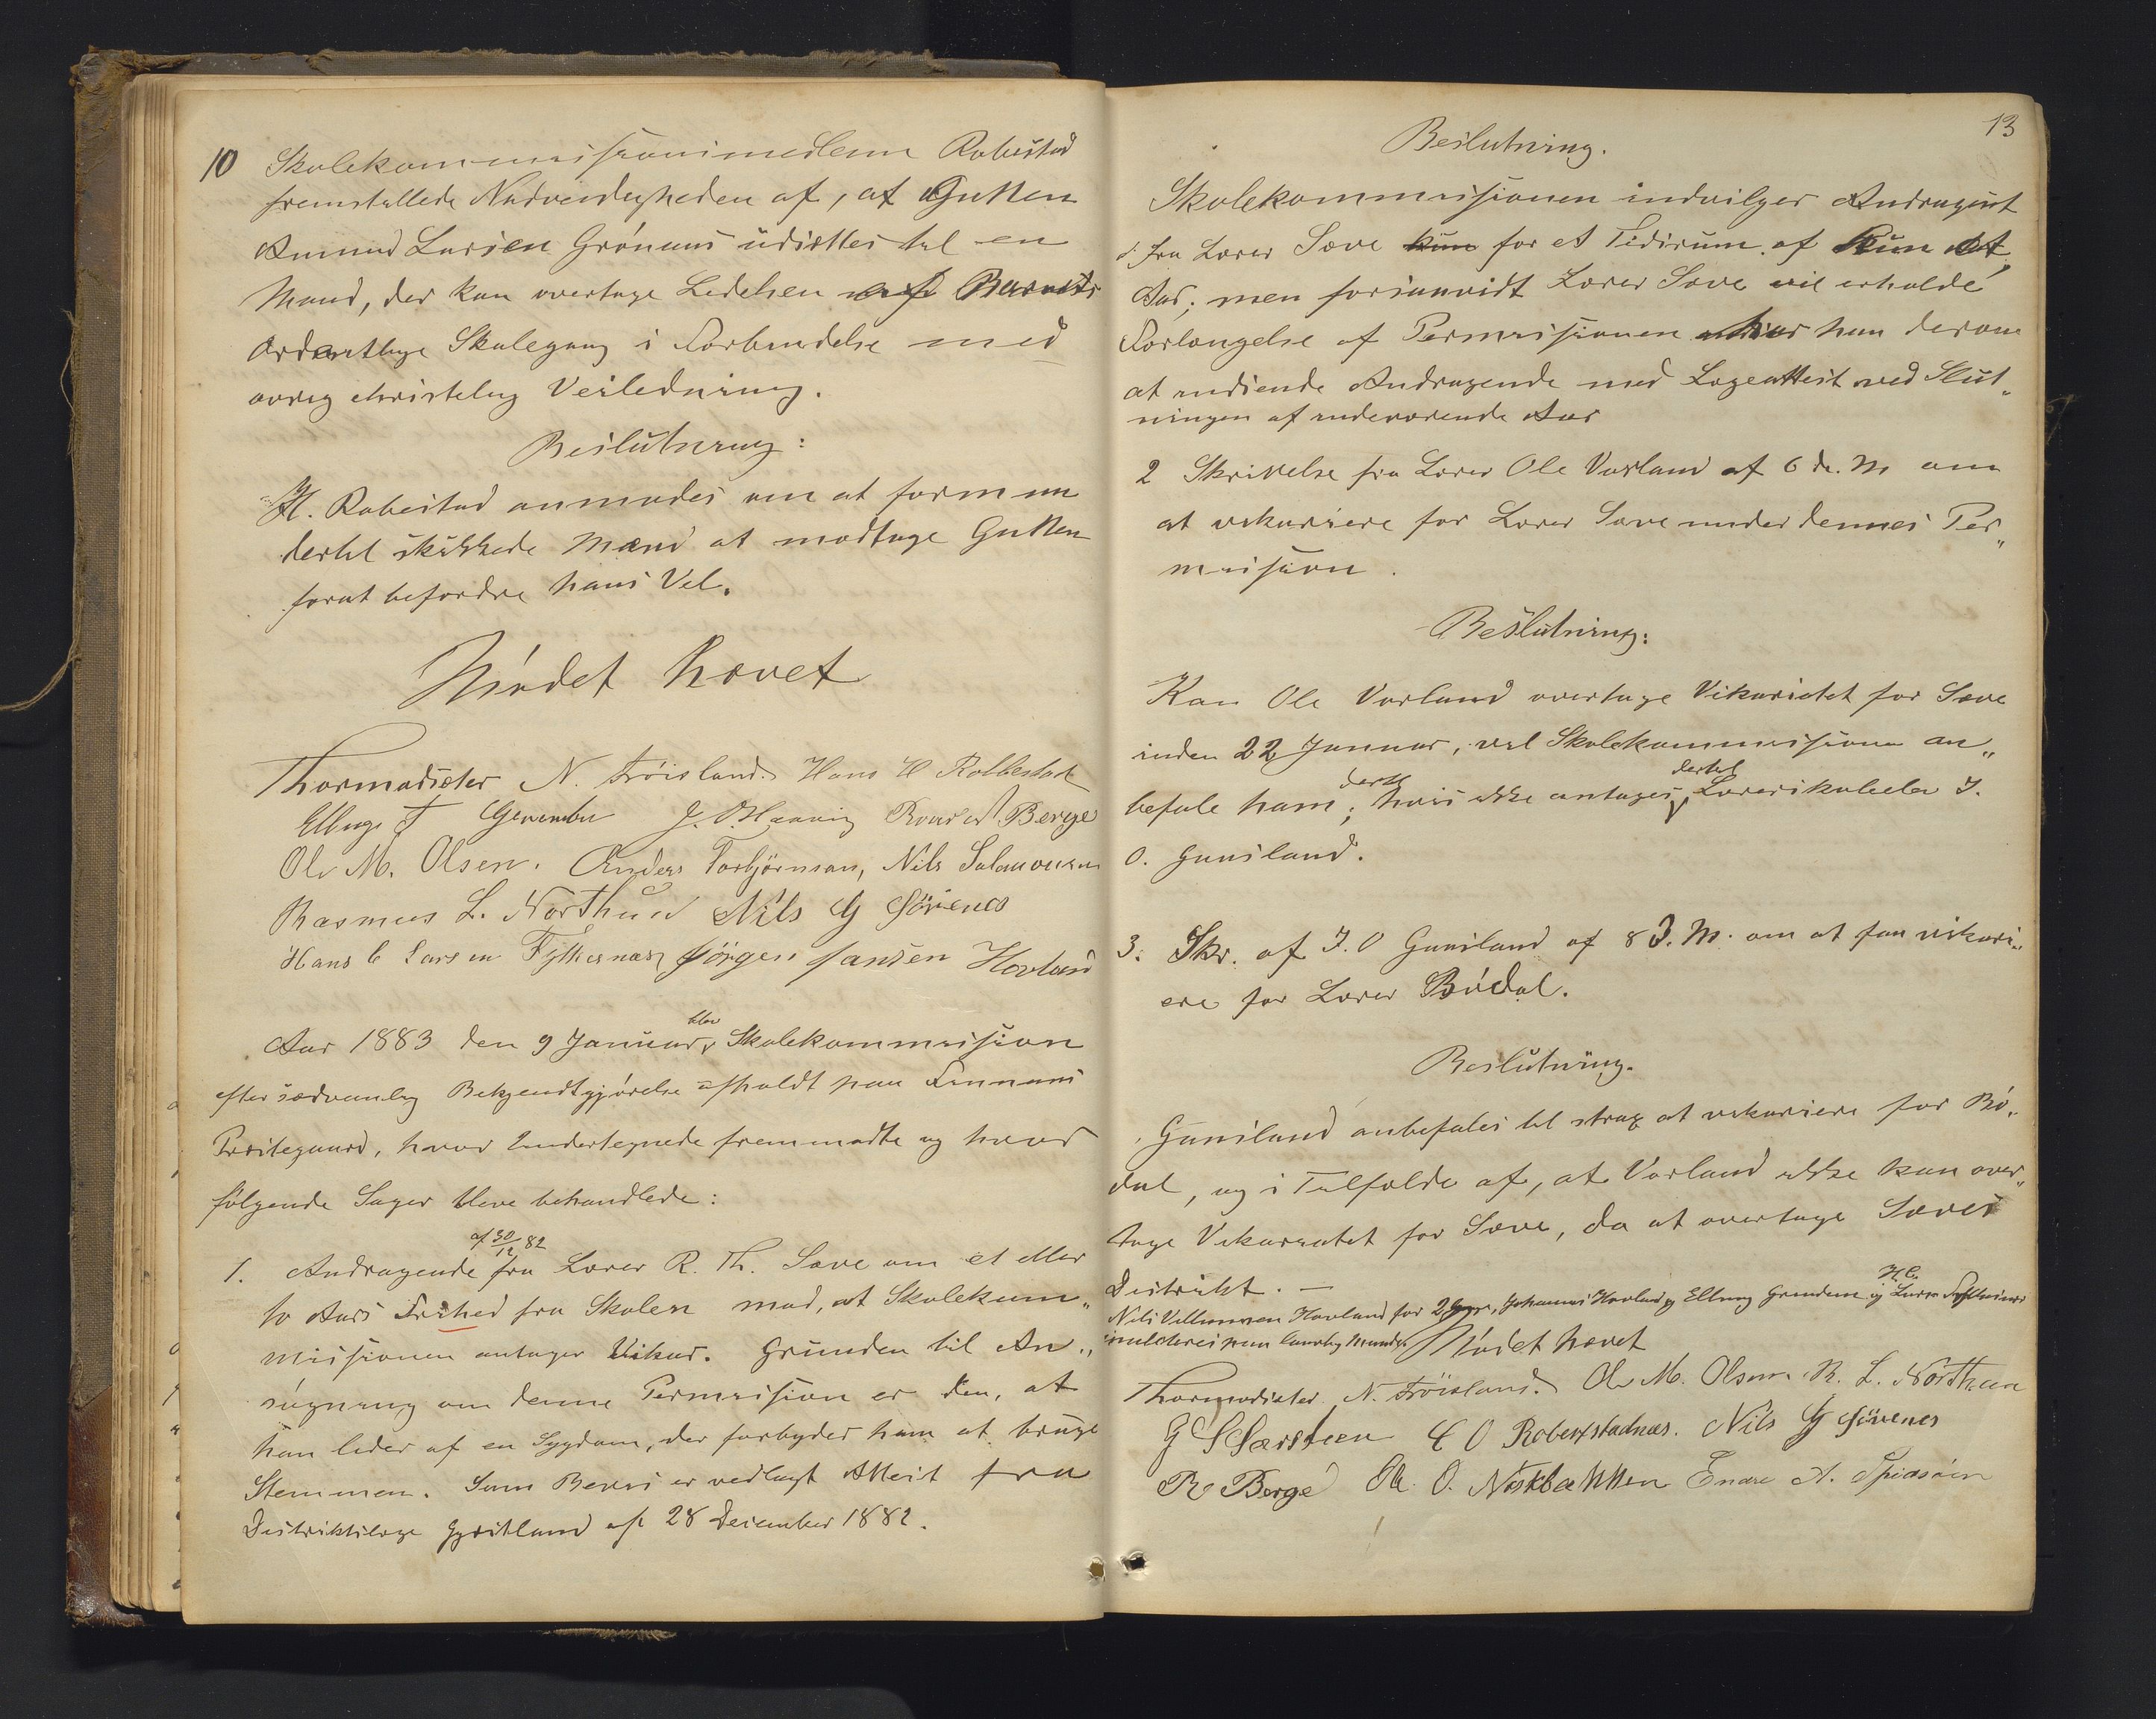 10 Skolekommissionsmedlem Robestad
fremstillede Nødvendigheden af, at Gutten
Amund Larsen Grønaas udsættes til en
Mand, der kan overtage Ledelsen af Barnets
ordentlige Skolegang i Forbindelse med
øvrig christelig Veiledning.
Beslutning:
H. Robestad anmodes om at formaa en
dertil skikkede Mænd at modtage Gutten
forat befordre hans Vel.
Mødet hævet
Thormodsæter N. Frøisland. Hans H Robbestad
Elling T Grinden J. O. Haavig Roald Berge
Ole M. Olsen. Anders Torbjørnsen, Nils Salamonsen
Rasmus L. Northun Nils G Sövenes
Hans C Larsen Fylkesnæs, Jörgen Jansen Hovland
Aar 1883 den 9 Januar blev Skolekommission
efter sædvanlig Bekjendtgjørelse afholdt paa Finnaas
Præstegaard, hvor Undertegnede fremmødte og hvor
følgende Sager bleve behandlede:
af 30/12 82
1. Andragende fra Lærer R. Th. Sæve om et eller
to Aars Frihed fra Skolen mod, at Skolekom„
missionen antager Vikar. Grunden til An„
søgning om denne Permission er den, at
han lider af en Sygdom, der forbyder ham at bruge
Stemmen. Som Bevis er vedlagt Attest fra
Distriktslæge Gjestland af 28 December 1882.
13
Beslutning.
Skolekommissionen indvilger Andragendet
fra Lærer Sæve kun for et Tidsrum af kun et
Aar; men forsaavidt Lærer Sæve vil erholde
Forlængelse af Permissionen har han derom
at indsende Andragende med Lægeattest ved Slut„
ningen af indeværende Aar
2 Skrivelse fra Lærer Ole Vorland af 6 ds. M. om
at vikariere for Lærer Sæve under dennes Per„
mission.
Beslutning:
Kan Ole Vorland overtage Vikariatet for Sæve
inden 22 Januar, vil Skolekommissionen an„
befale ham dertil; hvis ikke antages dertil Lærerskoleelev J.
O. Gunsland.
3. Skr. af J. O Gunsland af 8 d. M. om at faa vikari„
ere for Lærer Bødal.
Beslutning.
Gunsland anbefales til strax at vikariere for Bø„
dal, og i Tilfælde af, at Vorland ikke kan over„
tage Vikariatet for Sæve, da at overtage Sæves
Distrikt. —
Nils Villumsen Hovland for 2 Gange, Johannes Hovland og Elling Grinden og H. C. Larsen Fylkesnes
mulcteres paa lovlig Maade. Mødet hævet
Thormodsæter N. Frøisland. Ole M. Olsen R. L. Northun
G S Særsteen E O Robertstadnæs. Nils G Sövenes
R Berge Ole O. Nesbakken Endre A. Spidsöen